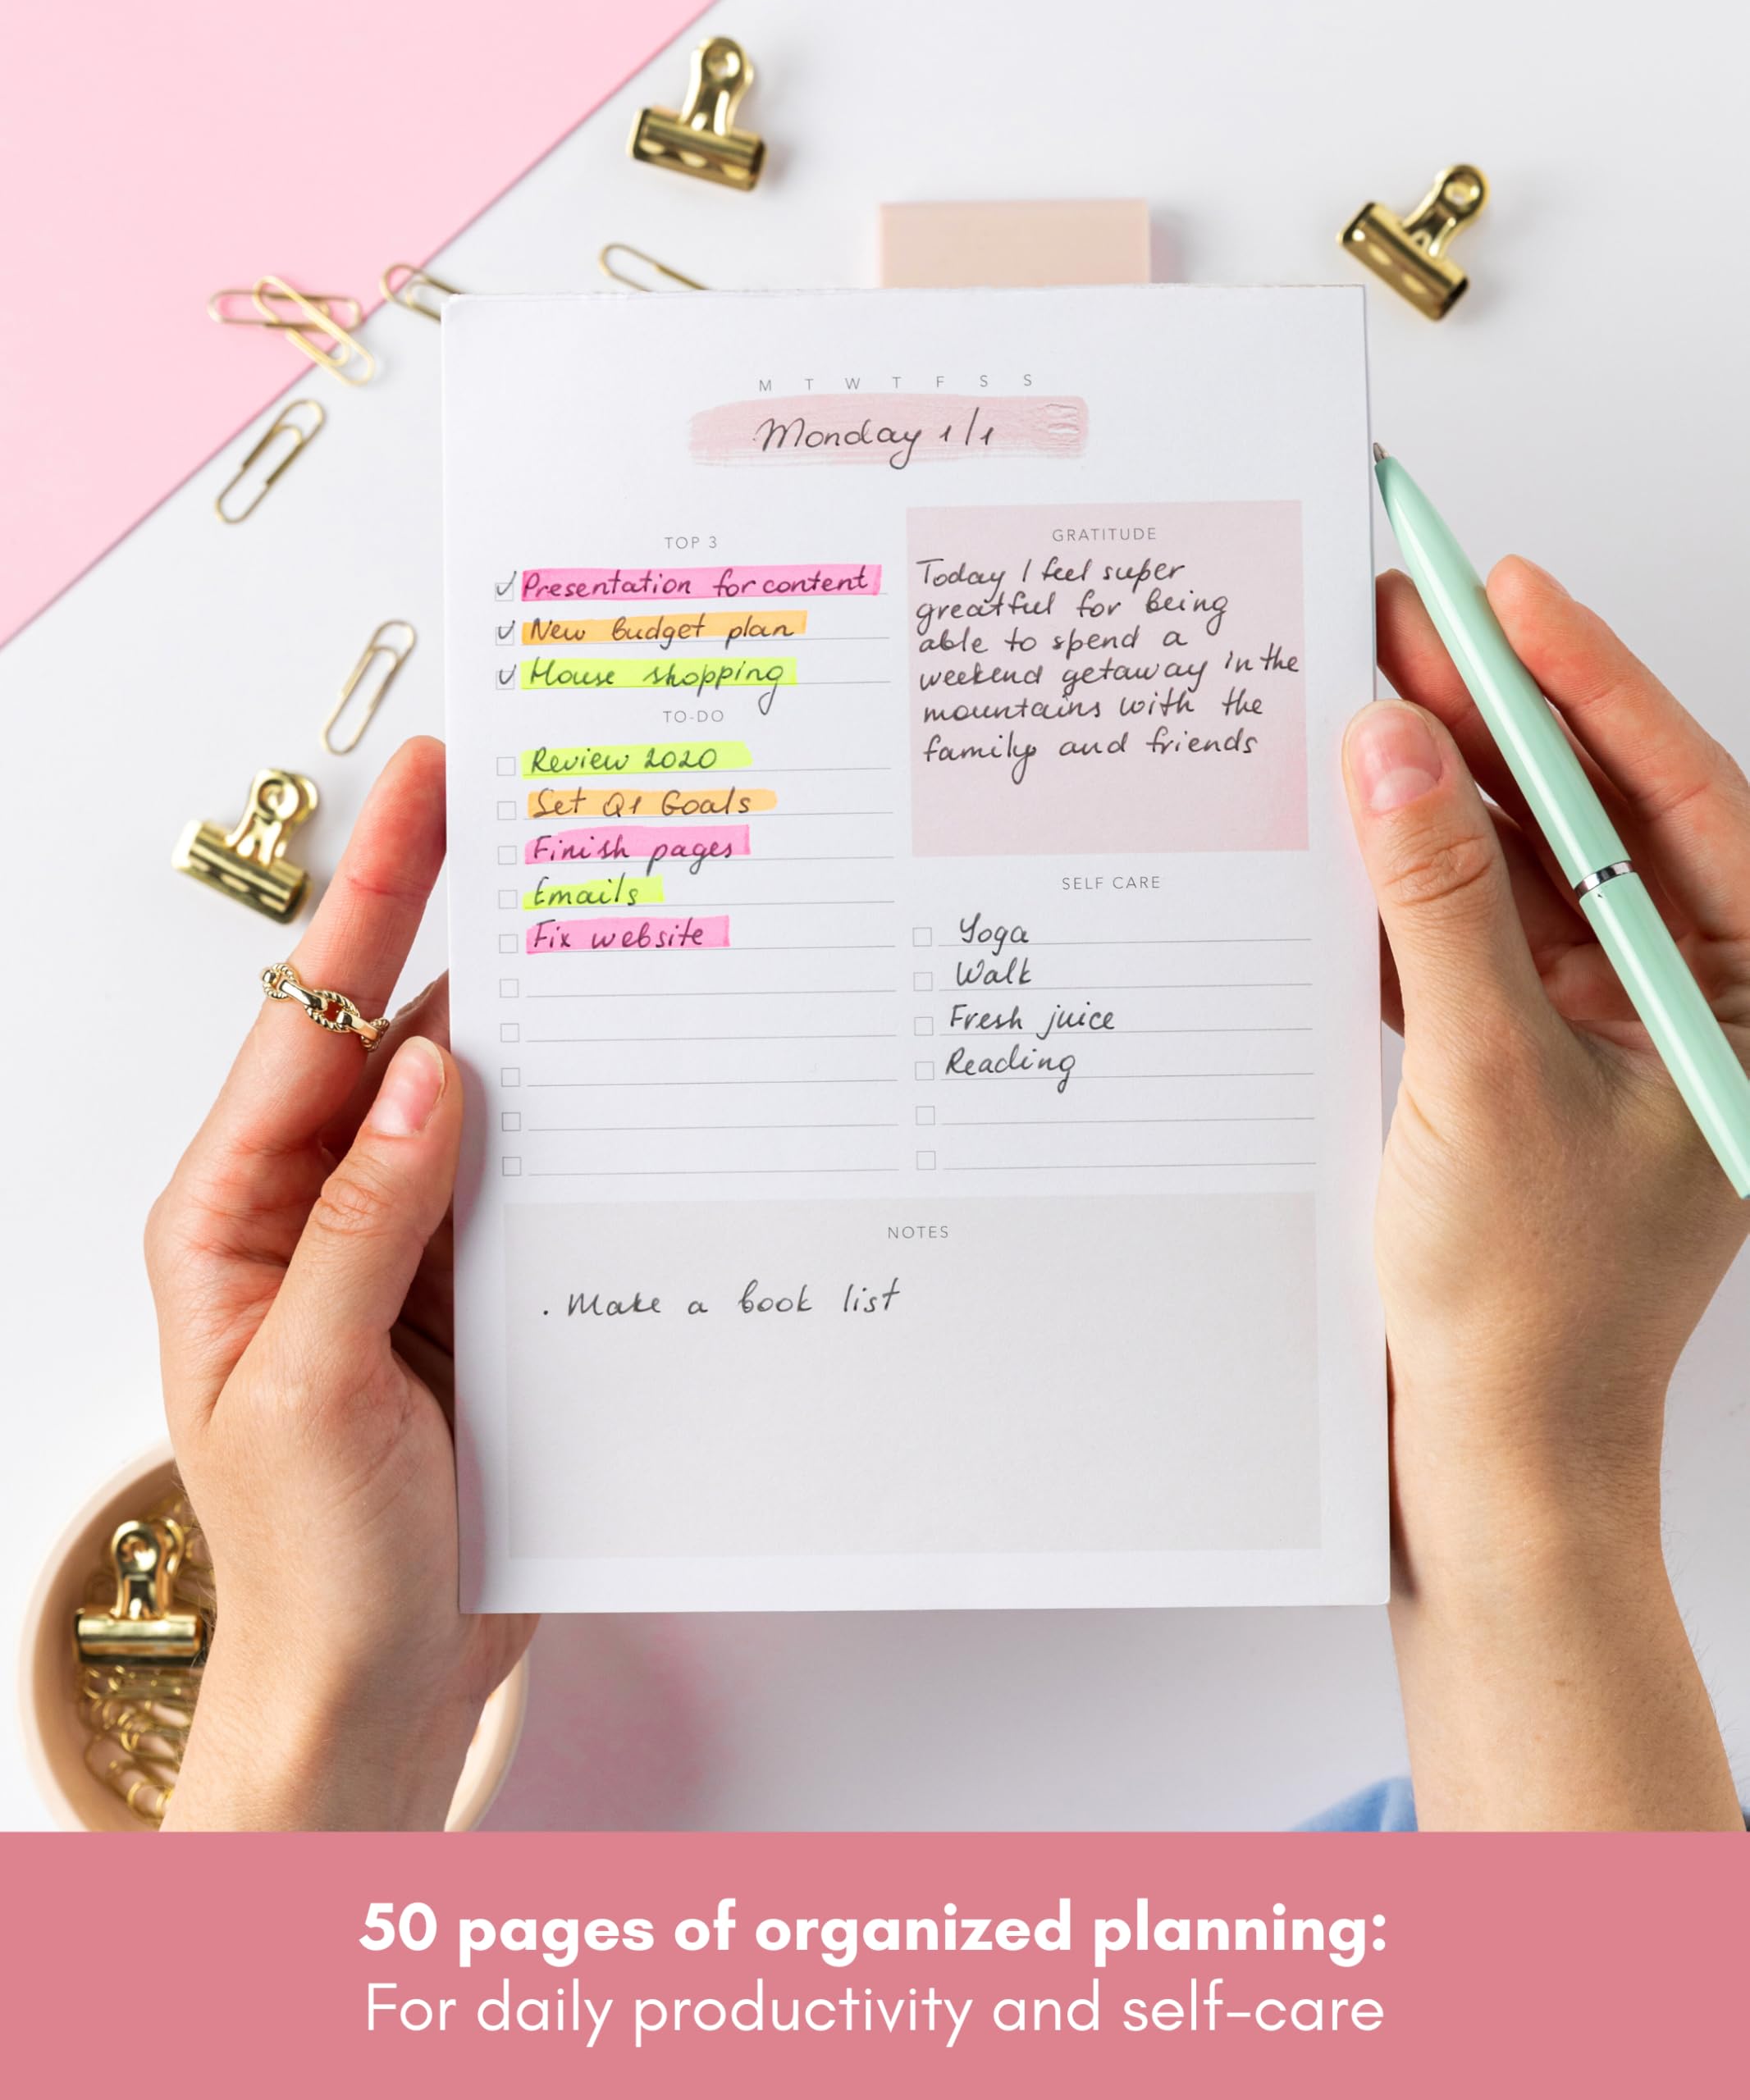 M T W T F S S
Monday 1/1
TOP 3
Presentation for content
New budget plan
House shopping
TO-DO
Review 2020
Set Q1 Goals
Finish pages
Emails
Fix website
GRATITUDE
Today I feel super
greatful for being
able to spend a
weekend getaway in the
mountains with the
family and friends
SELF CARE
Yoga
Walk
Fresh juice
Reading
NOTES
. Make a book list
50 pages of organized planning:
For daily productivity and self-care